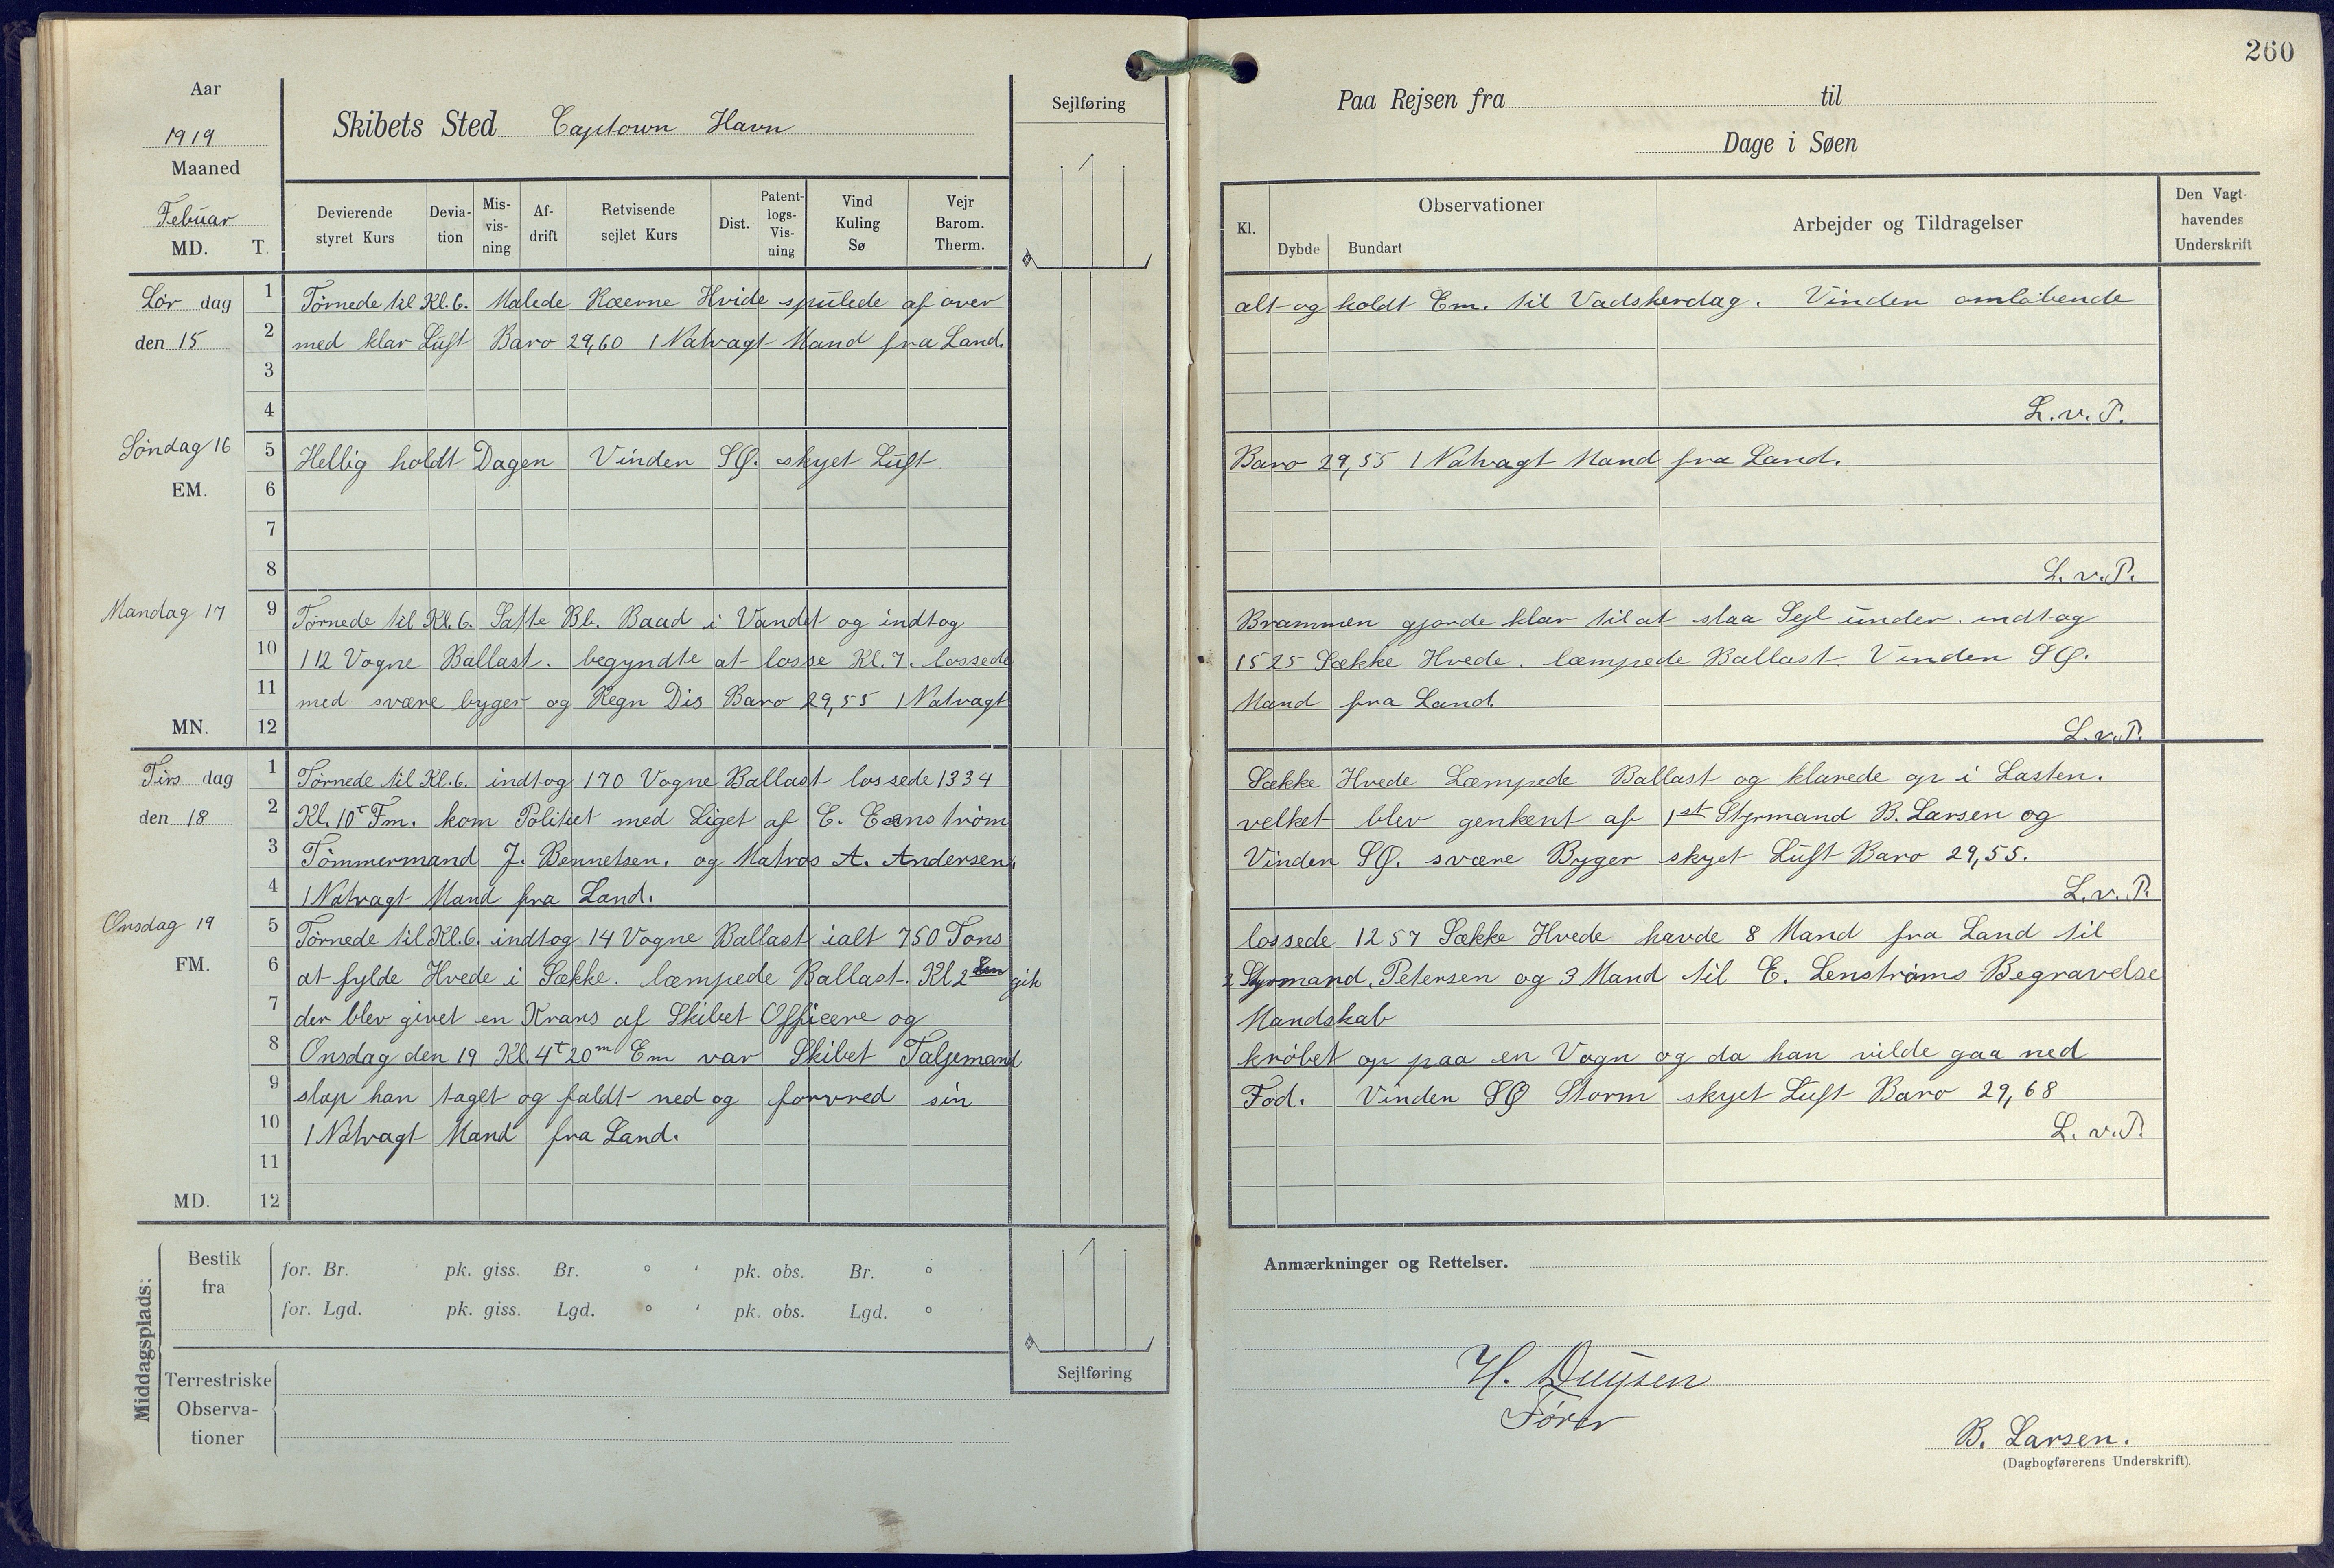 260
Aar
1919
Maaned
Febuar
MD. T.
Skibets Sted Captown Havn
Sejlføring
Paa Rejsen fra til
Dage i Søen
Devierende styret Kurs
Deviation
Misvisning
Afdrift
Retvisende sejlet Kurs
Dist.
Patentlogs-Visning
Vind Kuling Sø
Vejr Barom. Therm.
Kl.
Observationer
Dybde Bundart
Arbejder og Tildragelser
Den Vagthavendes Underskrift
Lør dag
den 15
1 Tørnede til Kl. 6. Malede Ræerne Hvide spulede af over alt og holdt Em. til Vadskerdag. Vinden omløbende
2 med klar Luft Baro 29,60 1 Natvagt Mand fra Land.
3
4 L.v.P.
Søndag 16
EM.
5 Hellig holdt Dagen Vinden SØ. skyet Luft Baro 29,55 1 Natvagt Mand fra Land.
6
7
8 L.v.P.
Mandag 17
MN.
9 Tørnede til Kl. 6. Satte Bb. Baad i Vandet og indtog Brammen gjorde klar til at slaa Sejl under. indtog
10 112 Vogne Ballast. begyndte at losse Kl. 7. lossede 1525 Sække Hvede. læmpede Ballast. Vinden SØ.
11 med svære byger og Regn Dis Baro 29,55 1 Natvagt Mand fra Land.
12 L.v.P.
Tirs dag
den 18
1 Tørnede til Kl. 6. indtog 170 Vogne Ballast lossede 1334 Sække Hvede Læmpede Ballast og klarede op i Lasten.
2 Kl. 10 T Fm. kom Politiet med Liget af E. velket blev genkent af 1st Styrmand B. Larsen og
3 Tømmermand J. Bennetsen. og Matros A. Andersen. Vinden SØ. svære Byger skyet Luft Baro 29,55.
4 1 Natvagt Mand fra Land. L.v.P.
Onsdag 19
FM.
5 Tørnede til Kl. 6. indtog 14 Vogne Ballast ialt 750 Tons lossede 1257 Sække Hvede havde 8 Mand fra Land til
6 at fylde Hvede i Sække. læmpede Ballast. Kl 2 Em gik 2 Styrmand, Petersen og 3 Mand til E. Lenstrøms Begravelse
7 der blev givet en Krans af Skibet Officere og Mandskab
8 Onsdag den 19 Kl. 4 T 20 m Em var Skibet Taljemand krøbet op paa en Vogn og da han vilde gaa ned
9 slap han taget og faldt ned og forvred sin Fod. Vinden SØ Storm skyet Luft Baro 29,68
10 1 Natvagt Mand fra Land. L.v.P.
11
MD. 12
Middagsplads:
Bestik fra
for. Br. pk. giss. Br. ° ' pk. obs. Br. ° '
for. Lgd. pk. giss. Lgd. ° ' pk. obs. Lgd. ° '
Terrestriske Observationer
Sejlføring
Anmærkninger og Rettelser.
H. Duysen
Fører
B. Larsen.
(Dagbogførerens Underskrift).